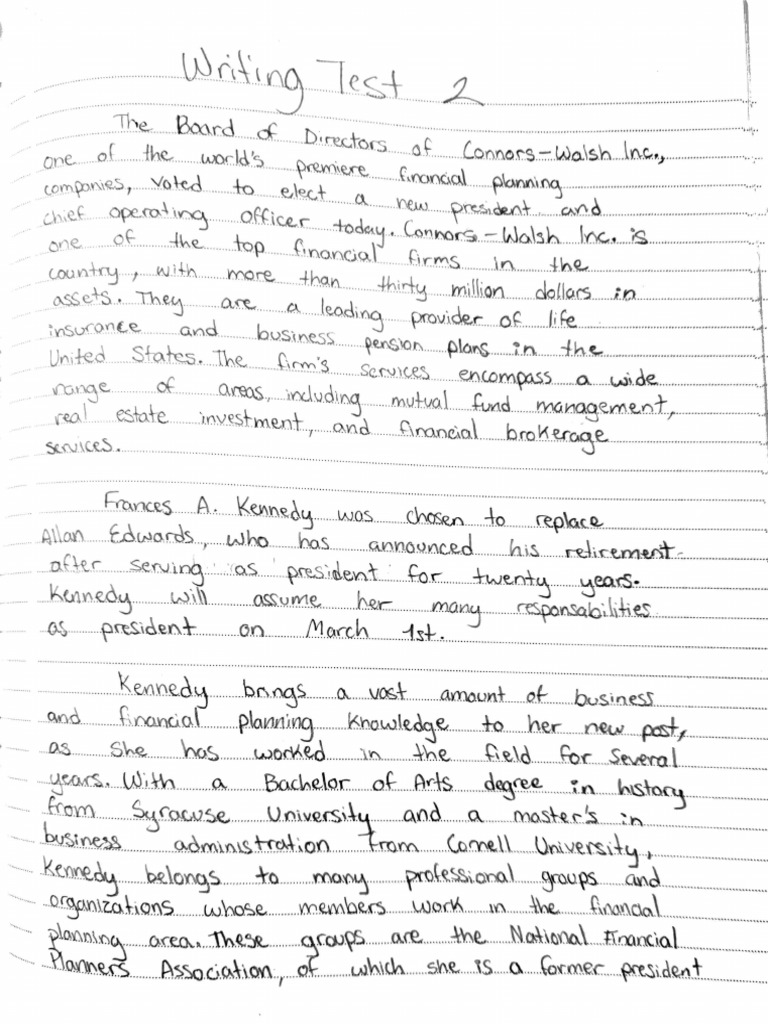 Writing Test 2
The Board of Directors of Connors-Walsh Inc.,
one of the world's premiere financial planning
companies, voted to elect a new president and
chief operating officer today. Connors-Walsh Inc. is
one of the top financial firms in the
country, with more than thirty million dollars in
assets. They are a leading provider of life
insurance and business pension plans in the
United States. The firm's services encompass a wide
range of areas, including mutual fund management,
real estate investment, and financial brokerage
services.
Frances A. Kennedy was chosen to replace
Allan Edwards, who has announced his retirement
after serving as president for twenty years.
Kennedy will assume her many responsabilities
as president on March 1st.
Kennedy brings a vast amount of business
and financial planning knowledge to her new post,
as she has worked in the field for several
years. With a Bachelor of Arts degree in history
from Syracuse University and a master's in
business administration from Cornell University,
Kennedy belongs to many professional groups and
organizations whose members work in the financial
planning area. These groups are the National Financial
Planners Association, of which she is a former president